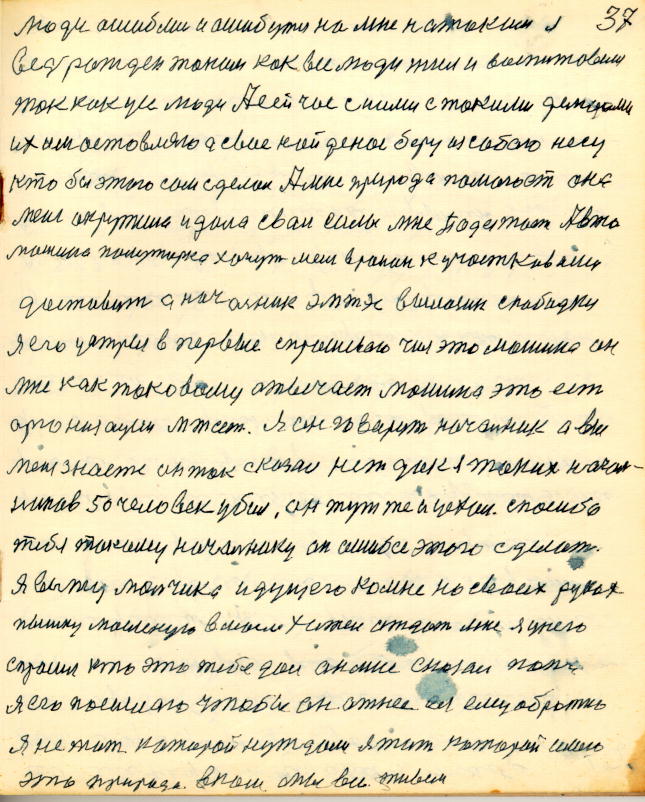 37
люди ошибли и ошибутся на мне на таким я
ведь рожден таким как все люди жил и воспитовался
так как усе люди А сейчас с ними с такими делами
их оставляю а свае найденое беру и собаю несу
кто бы этого сам сделал А мне природа помогает она
меня окружила и дала сваи силы мне Падет Авто
машина полуторка хочут меня в район к участковаму
доставит а начальник вылазит с кабинки
я его увидел в первые спрашеваю чия это машина он
мне как таковому отвечает машина это ест
организации мтс. Я он говарит началник а вы
меня знаете он так сказал нет дак я таких начал-
ников 50 человек убил, он тут же и уехал. спасибо
тебя такому началнику он ошибсе этого сделат.
Я вижу малчика идущего комне на своех руках
пышку масленую в масле хочет отдат мне я унего
спросил кто это тебе дал он мне сказал папа
я его посилаю чтобы он отнес ей ему обратно
Я не тот каторай нуждаюс я тот каторай имею
это природа. в каой мы все живем